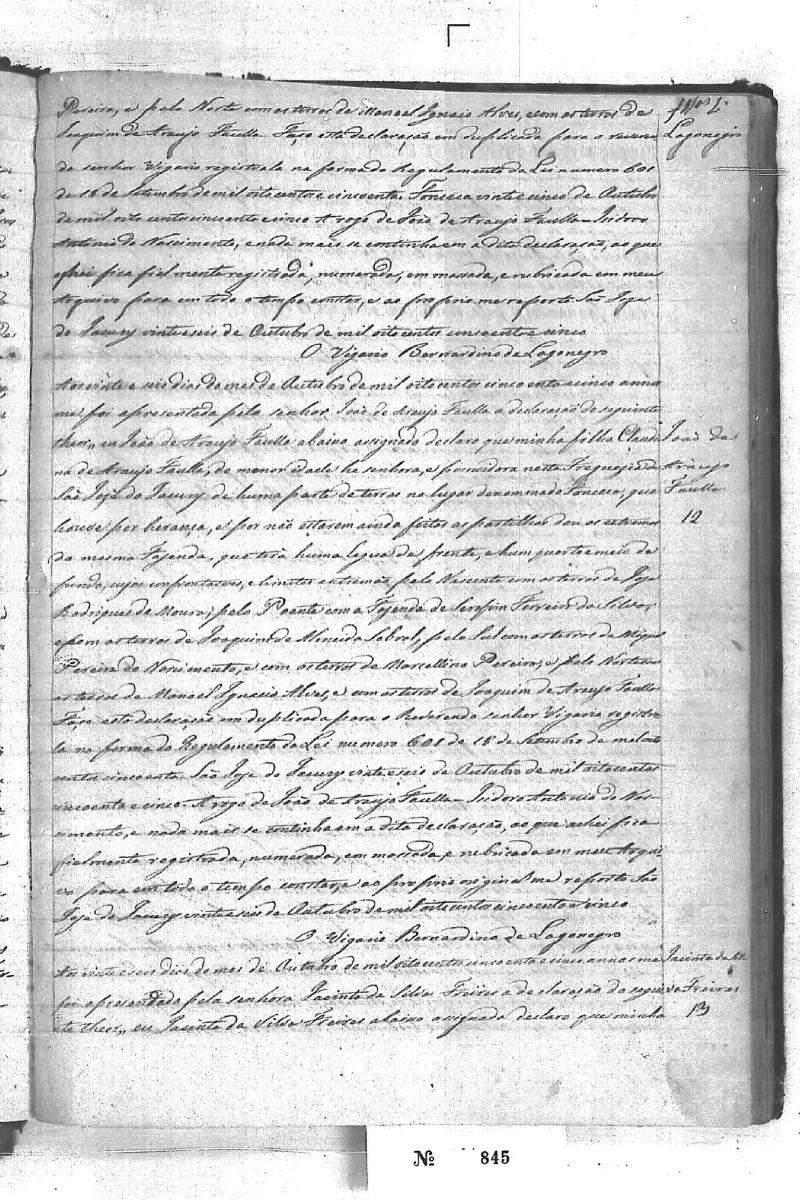 Pereira, e pelo Norte com as terras de Manoel Ignacio Alves, e com as terras de
Joaquim de Araujo Faulla. Faço esta declaração em duplicada para o reveren
Lagonegro
do senhor Vigario registrala na forma do Regulamento da Lei numero 601
de 18 de Setembro de mil oito centos e cincoenta. Fonseca vinte e cinco de Outubro
de mil oito centos cincoenta e cinco A rogo de João de Araujo Faulla - Isidoro
Antonio do Nascimento, e nada mais se continha em a dita declaração, ao que
achei fica fielmente registrada, numerada, em massada, e rubricada em meu
Arquivo para em todo o tempo constar, e ao proprio me reporto São Joze
do Jacury vinte e seis de Outubro de mil oito centos cincoenta e cinco
O Vigario Bernardino de Lagonegro
Aos vinte e seis dias do mes de Outubro de mil oito centos cincoenta e cinco annos
me foi apresentada pelo senhor João de Araujo Faulla a declaração do seguinte
theor,, eu João de Araujo Faulla abaixo assignado declaro que minha filha Claudi
João de
na de Araujo Faulla, de menor idade he senhora, e possuidora nesta Freguezia de
Araujo
São Joze do Jacury de huma parte de terras no lugar denominado Fonseca, que
Faulla
houve por herança, e por não estarem ainda feitas as partilhas dou os extremos
12
da mesma Fazenda, que terá huma legua de frente, e hum quarto e meio de
fundo, cujas confrontações, e limites extremão, pelo Nascente com as terras de Joze
Rodrigues de Moura; pelo Poente com a Fazenda de Serafim Ferreira da Silva,
e com as terras de Joaquim de Almeida Cabral, pelo Sul com as terras de Migue
Pereira do Nascimento, e com as terras de Marcellino Pereira, e pelo Norte com
as terras de Manoel Ignacio Alves, e com as terras de Joaquim de Araujo Faulla
Faço esta declaração em duplicada para o Reverendo senhor Vigario registra
la na forma do Regulamento da Lei numero 601 de 18 de Setembro de mil oito
centos cincoenta. São Joze do Jacury vinte e seis de Outubro de mil oito centos
cincoenta e cinco. A rogo de João de Araujo Faulla - Isidoro Antonio do Nas-
cimento, e nada mais se continha em a dita declaração, ao que achei fica
fielmente registrada, numerada, em massada, e rubricada em meu Arqui-
vo para em todo o tempo constar, e ao proprio original me reporto São
Joze do Jacury vinte e seis de Outubro de mil oito centos cincoenta e cinco
O Vigario Bernardino de Lagonegro
Aos vinte e seis dias do mes de Outubro de mil oito centos cincoenta e cinco annos me
Jacinta da Sil
foi apresentada pela senhora Jacinta da Silva Freires a declaração do seguin
va Freires
te theor,, eu Jacinta da Silva Freires abaixo assignada declaro que minha
13
Nº 845